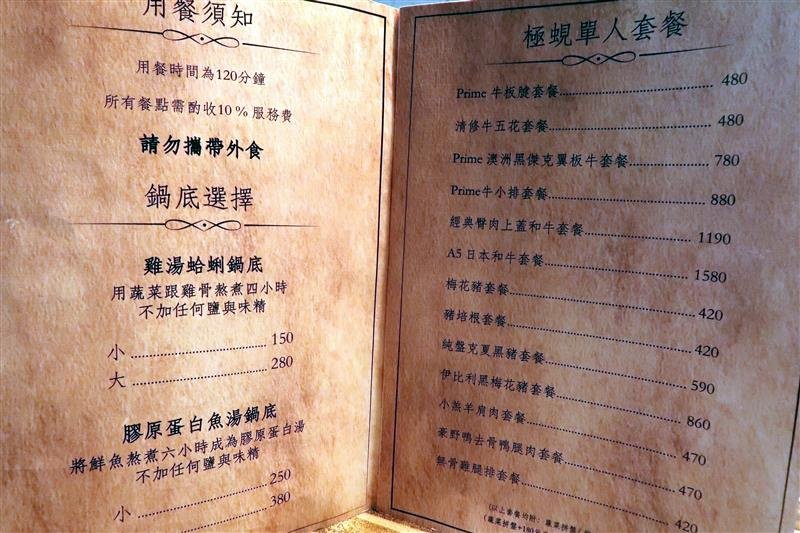 用餐須知
用餐時間為120分鐘
所有餐點需酌收10％服務費
請勿攜帶外食
鍋底選擇
雞湯蛤蜊鍋底
用蔬菜跟雞骨熬煮四小時
不加任何鹽與味精
小 150
大 280
膠原蛋白魚湯鍋底
將鮮魚熬煮六小時成為膠原蛋白湯
不加任何鹽與味精
小 250
380
極蜆單人套餐
Prime 牛板腱套餐 480
清修牛五花套餐 480
Prime 澳洲黑傑克翼板牛套餐 780
Prime牛小排套餐 880
經典臀肉上蓋和牛套餐 1190
A5 日本和牛套餐 1580
梅花豬套餐 420
豬培根套餐 420
純盤克夏黑豬套餐 590
伊比利黑梅花豬套餐 860
小羔羊肩肉套餐 470
豪野鴨去骨鴨腿肉套餐 470
無骨雞腿排套餐 420
(以上套餐均附：蔬菜拼盤
(蔬菜拼盤+180